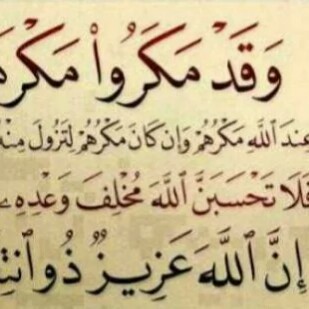 وَقَدْ مَكَرُوا۟ مَكْرَ
عِندَ ٱللَّهِ مَكْرُهُمْ وَإِن كَانَ مَكْرُهُمْ لِتَزُولَ مِنْ
فَلَا تَحْسَبَنَّ ٱللَّهَ مُخْلِفَ وَعْدِهِۦ
إِنَّ ٱللَّهَ عَزِيزٌ ذُو ٱنتِ